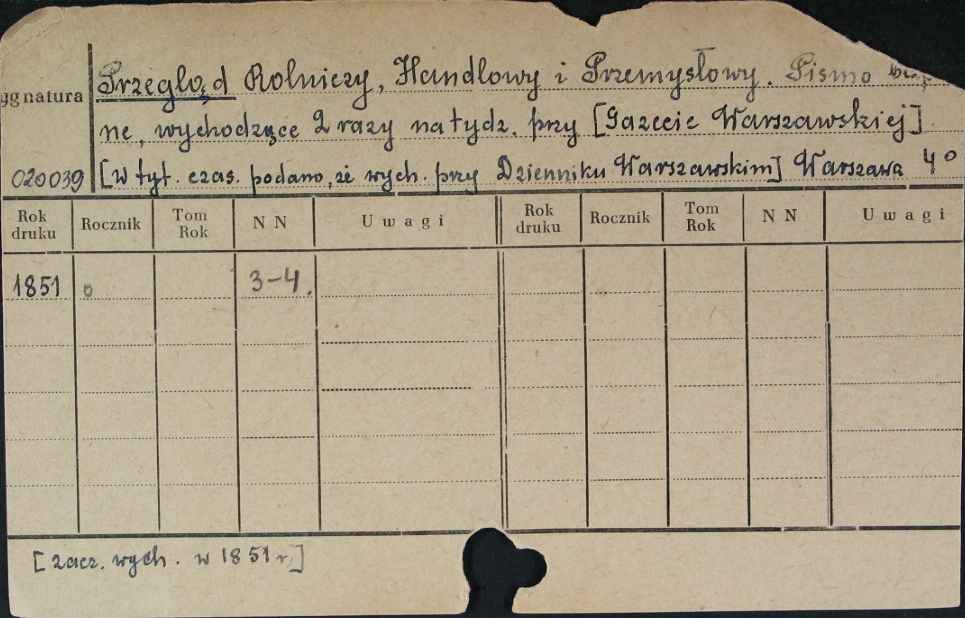 Przegląd Rolniczy, Handlowy i Przemysłowy. Pismo
ygnatura
ne, wychodzące 2 razy na tydz. przy [Gazecie Warszawskiej]
020039 [W tyt. czas. podano, że wych. przy Dzienniku Warszawskim] Warszawa 4°
Rok druku Rocznik Tom Rok NN Uwagi Rok druku Rocznik Tom Rok NN Uwagi
1851 0 3-4.
[zacz. wych. w 1851 r.]